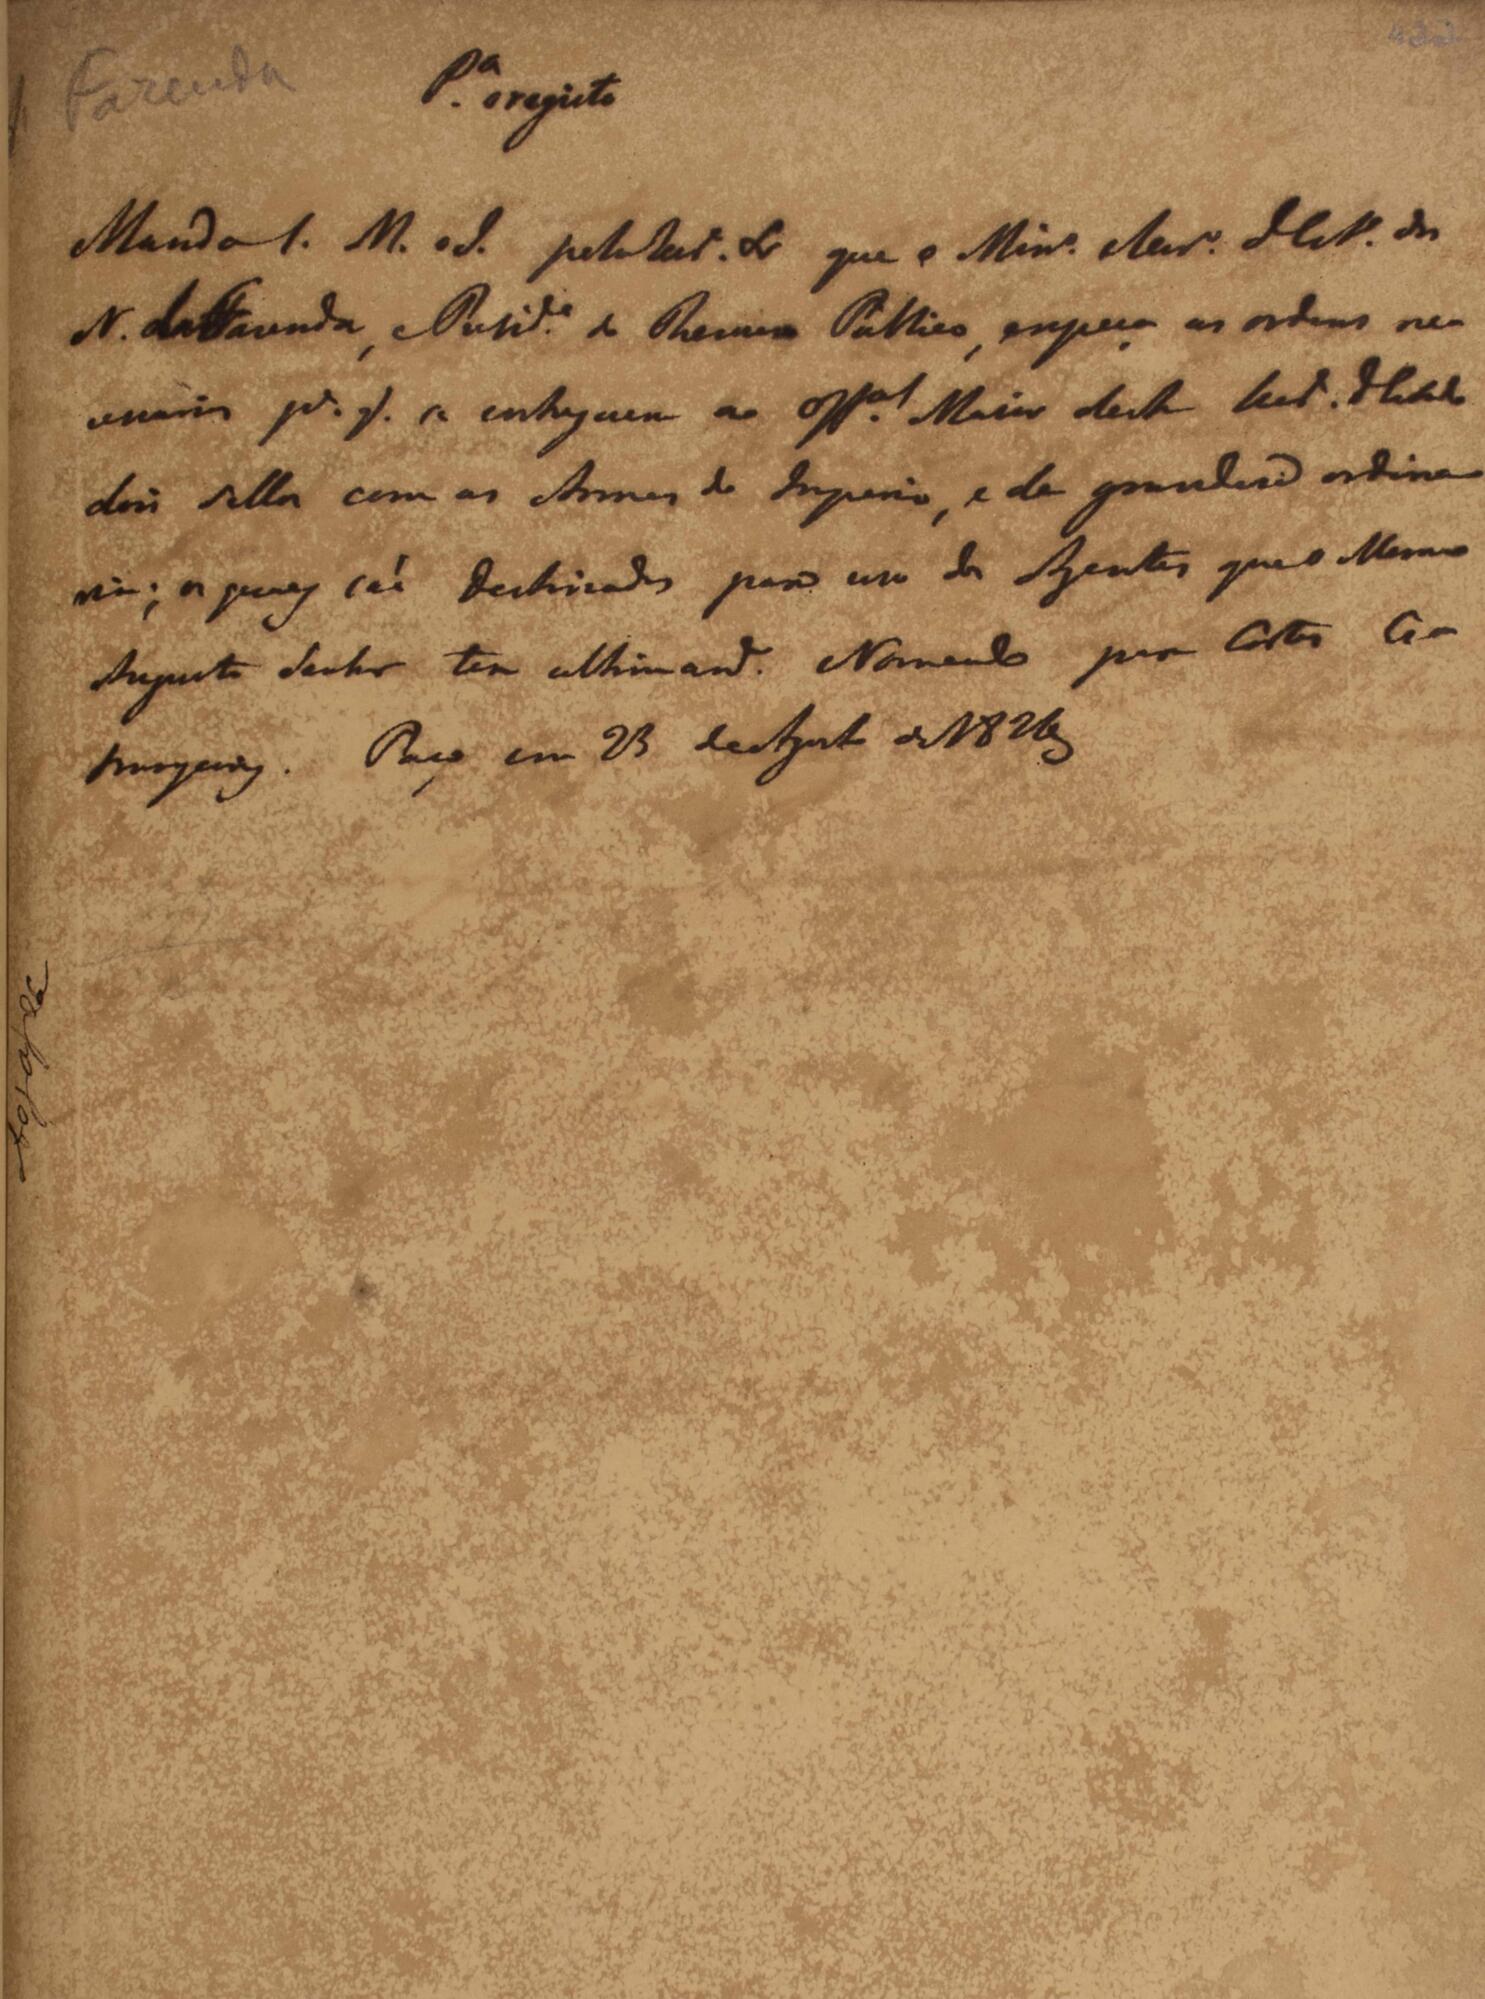 Fazenda
P.ª o registo
Manda S. M. o I. pela Secr. &ª que o Min.º e Secr.º d'Est.º dos
N. da Fazenda, e Presid.e do Thesouro Publico, expeça as ordens nec
cessarias p.ª q. se entreguem ao Off.al Maior desta Secr. d'Estado
dois sellos com as Armas do Imperio, e da grandeza ordina
ria; os quaes são destinados para uso dos Agentes que o Mesmo
Augusto Senhor tem ultimam.e Nomeado para Cortes Es
trangeiras. Paço em 23 de Agosto de 1826